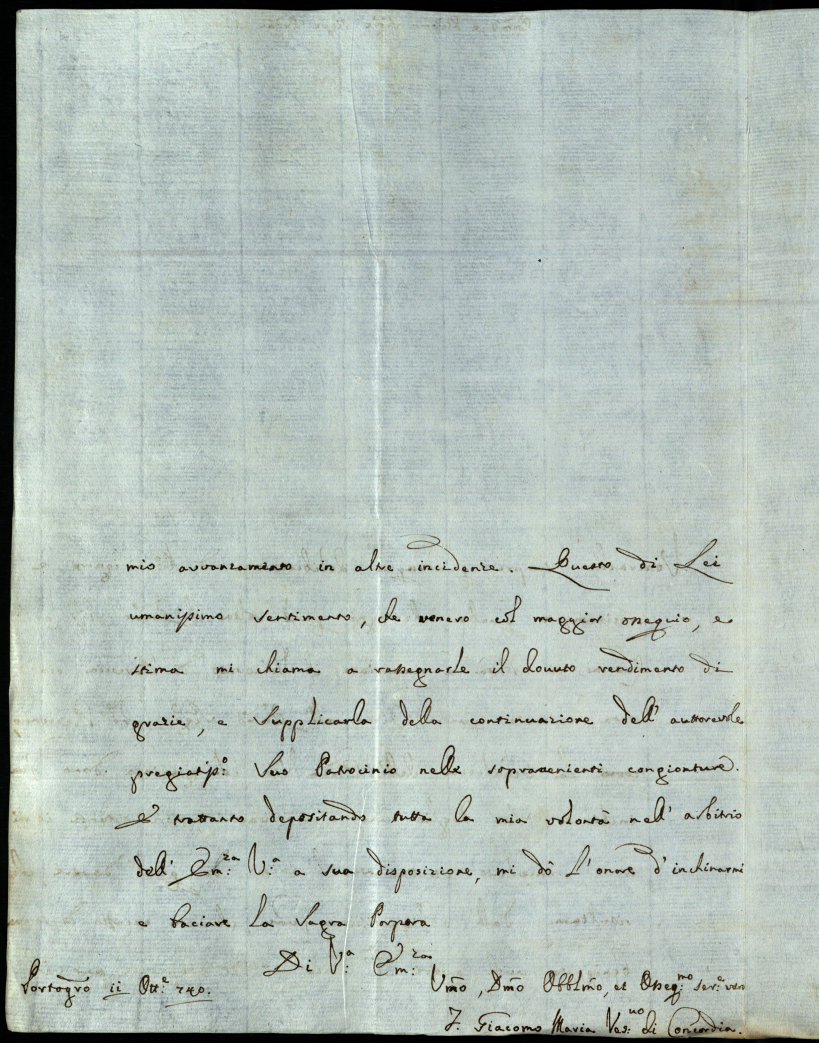 mio avvanzamento in altre incidenze. Questo di Lei
umanissimo sentimento, che venero col maggior ossequio, e
stima mi chiama a rassegnarle il dovuto rendimento di
grazie, e Supplicarla della continuazione dell' auttorevole
pregiatiss:º Suo Patrocinio nelle sopravenienti congionture.
E trattanto depositando tutta la mia volontà nell' arbitrio
dell' Em:za V:a a sua disposizione, mi dò L'onore d'inchinarmi
e baciare La Sagra Porpora
Di V:a Em:za
Portogrō ii Ott:e 740.
Vm̄o, Dm̄o Obblm̄o, et Osseq:mo Ser:e vero
F. Giacomo Maria Ves:uo di Concordia.